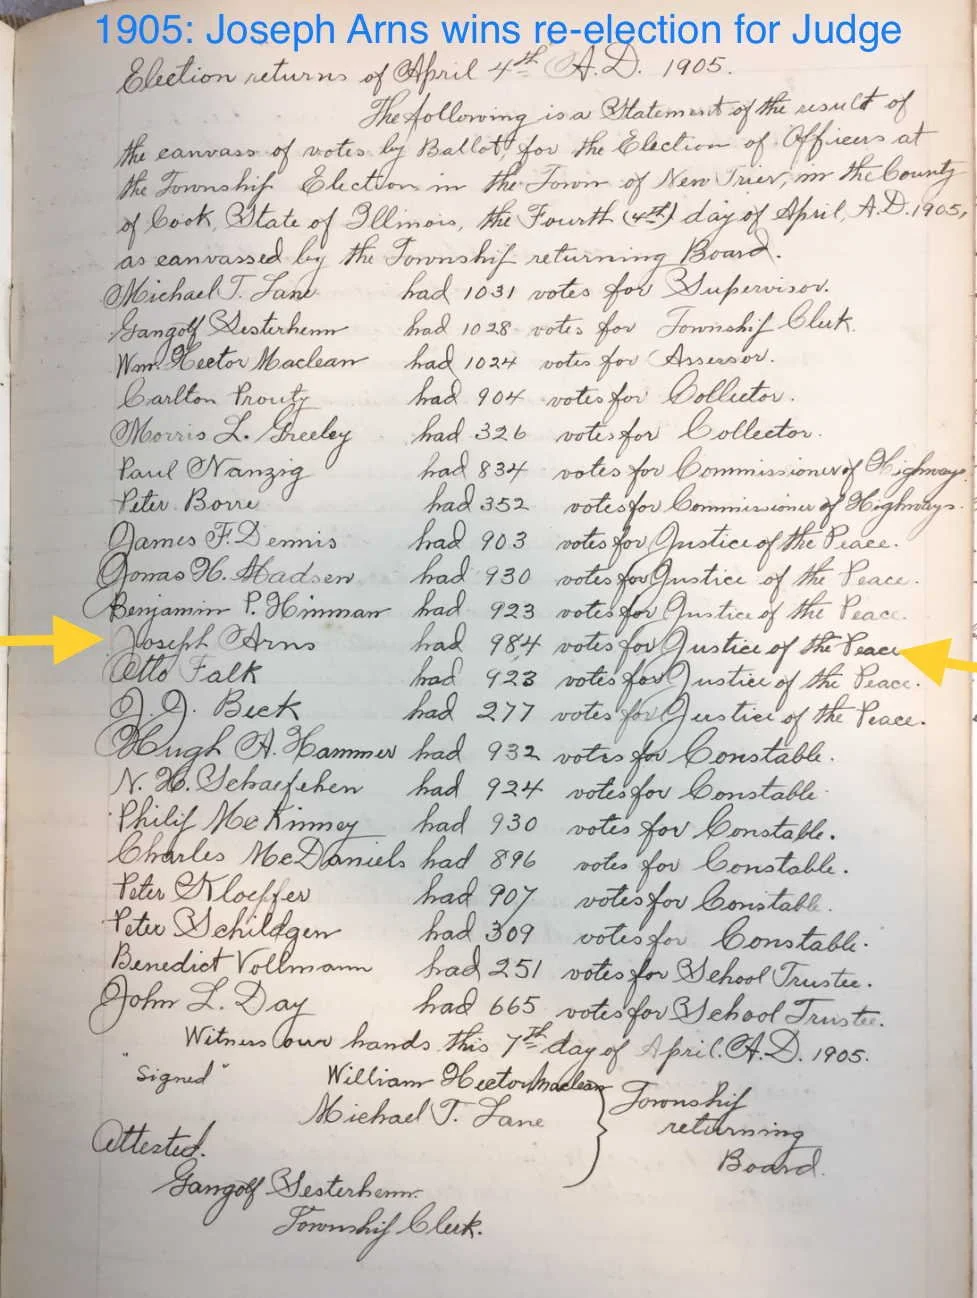 1905: Joseph Arns wins re-election for Judge
Election returns of April 4th A.D. 1905.
The following is a Statement of the result of
the canvass of votes by Ballot, for the Election of Officers at
the Township Election in the Town of New Trier, in the County
of Cook, State of Illinois, the Fourth (4th) day of April, A.D. 1905,
as canvassed by the Township returning Board.
Michael T. Lane had 1031 votes for Supervisor.
Gangolf Sesterhenn had 1028 votes for Township Clerk.
Wm. Hector Maclean had 1024 votes for Assessor.
Carlton Prouty had 904 votes for Collector.
Morris L. Greeley had 326 votes for Collector.
Paul Nanzig had 834 votes for Commissioner of Highways.
Peter Borre had 352 votes for Commissioner of Highways.
James F. Dennis had 903 votes for Justice of the Peace.
Jonas H. Madsen had 930 votes for Justice of the Peace.
Benjamin P. Hinman had 923 votes for Justice of the Peace.
Joseph Arns had 984 votes for Justice of the Peace
Otto Falk had 923 votes for Justice of the Peace.
J. J. Beck had 277 votes for Justice of the Peace.
Hugh A. Hammer had 932 votes for Constable.
N. H. Schaefchen had 924 votes for Constable.
Philip McKinney had 930 votes for Constable.
Charles McDaniels had 896 votes for Constable.
Peter Kloepfer had 907 votes for Constable.
Peter Schildgen had 309 votes for Constable.
Benedict Vollmann had 251 votes for School Trustee.
John L. Day had 665 votes for School Trustee.
Witness our hands this 7th day of April. A.D. 1905.
"Signed" William Hector Maclean
Michael T. Lane
Township
returning
Board.
Attested.
Gangolf Sesterhenn.
Township Clerk.